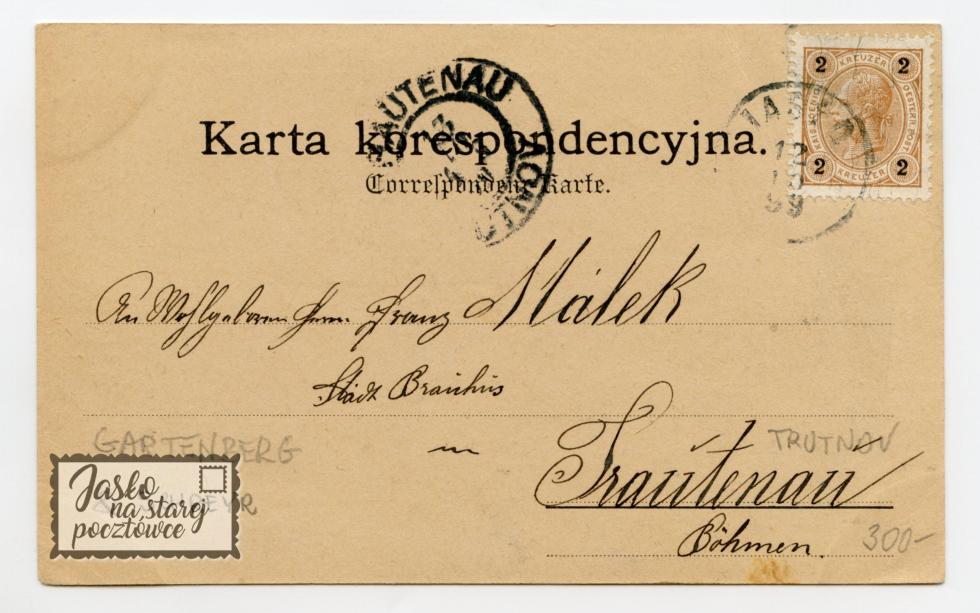 Karta korespondencyjna.
Correspondenz-Karte.
TRAUTENAU
3
JASŁO
12
99
2 KREUZER 2
2 KREUZER 2
An Wohlgeboren Herrn Franz Málek
Stadt Brauhaus
in Trautenau
Böhmen.
GARTENBERG
TRUTNAV
300-
Jasło
na starej
pocztówce